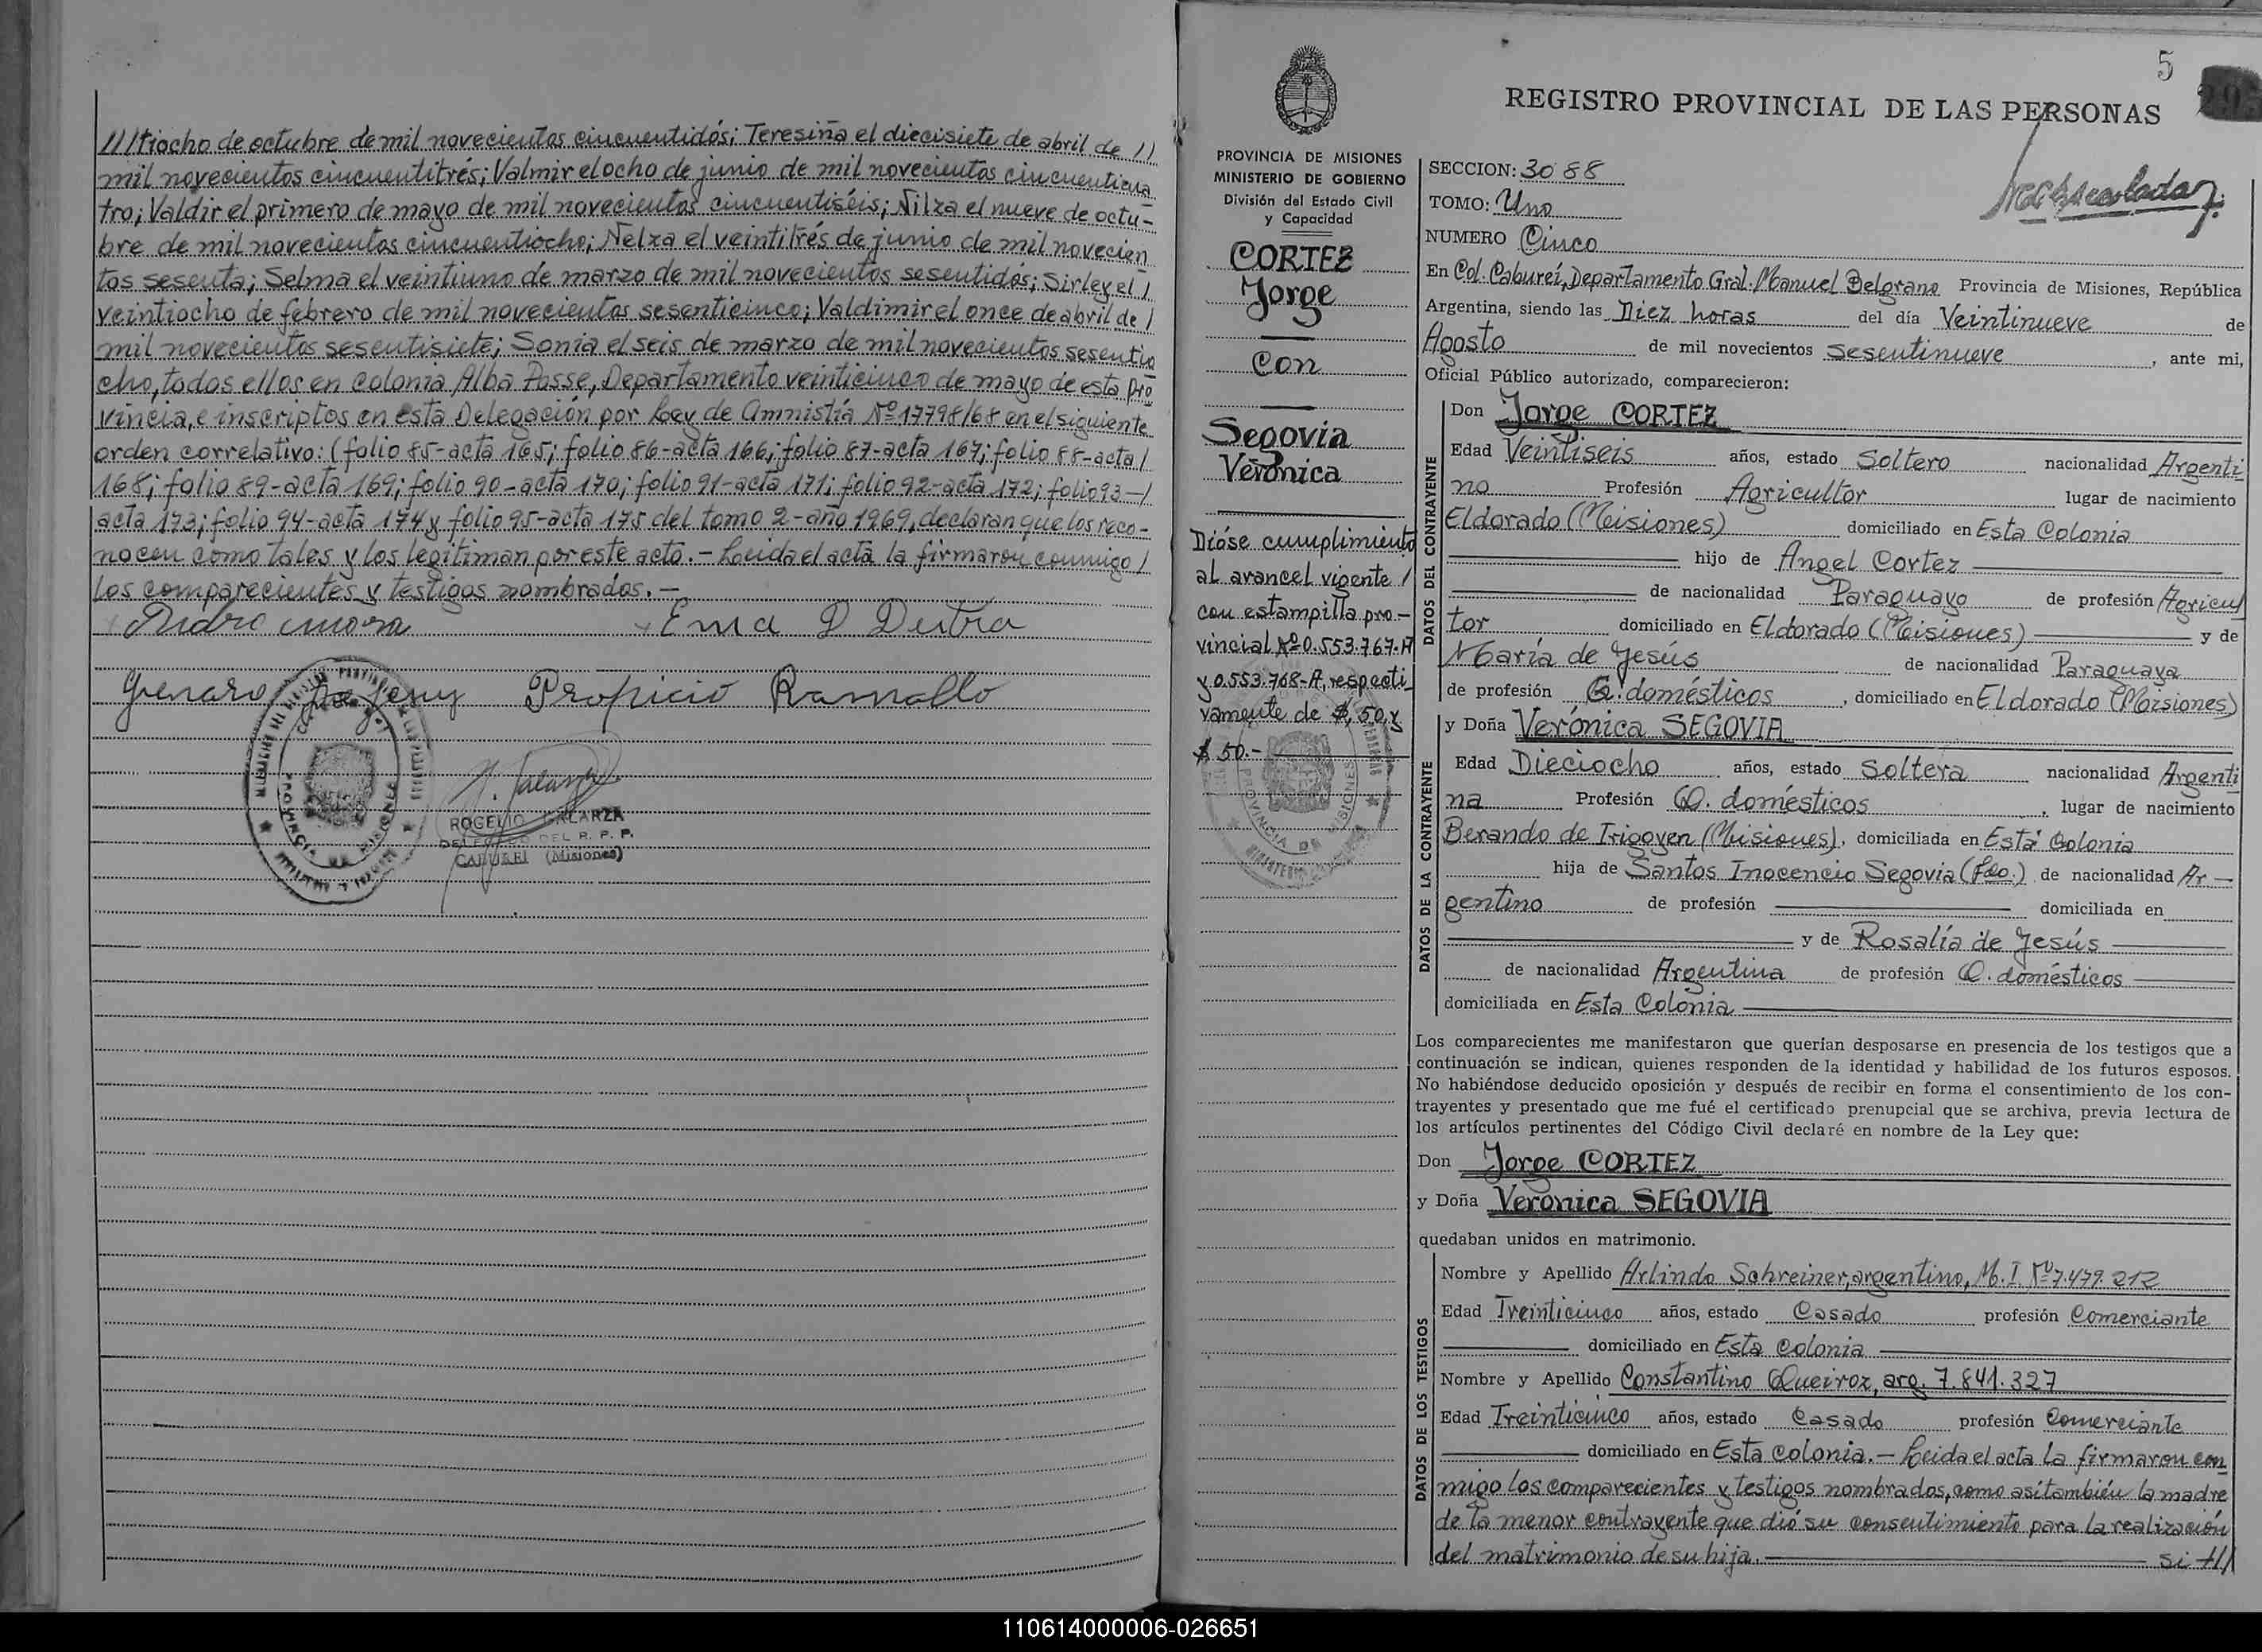 ///tiocho de octubre de mil novecientos cincuentidós; Teresiña el diecisiete de abril de //
mil novecientos cincuentitrés; Valmir el ocho de junio de mil novecientos cincuenticua
tro; Valdir el primero de mayo de mil novecientos cincuentiséis; Nilza el nueve de octu-
bre de mil novecientos cincuentiocho; Nelza el veintitrés de junio de mil novecien
tos sesenta; Selma el veintiuno de marzo de mil novecientos sesentidós; Sirley el /
veintiocho de febrero de mil novecientos sesenticinco; Valdimir el once de abril de /
mil novecientos sesentisiete; Sonia el seis de marzo de mil novecientos sesentio
cho, todos ellos en Colonia Alba Posse, Departamento veinticinco de mayo de esta pro
vincia, e inscriptos en esta Delegación por Ley de Amnistía Nº 17798/68 en el siguiente
orden correlativo: (folio 85-acta 165; folio 86-acta 166; folio 87-acta 167; folio 88-acta /
168; folio 89-acta 169; folio 90-acta 170; folio 91-acta 171; folio 92-acta 172; folio 93-/
acta 173; folio 94-acta 174 y folio 95-acta 175 del tomo 2-año 1969, declaran que los reco-
nocen como tales y los legitiman por este acto.- Leida el acta la firmaron conmigo /
los comparecientes y testigos nombrados.-
Ema D Dutra
Genaro
Propicio Ramallo
ROGELIO GALARZA
DELEGADO DEL R. P. P.
CABUREI (Misiones)
PROVINCIA DE MISIONES
5
REGISTRO PROVINCIAL DE LAS PERSONAS
PROVINCIA DE MISIONES
MINISTERIO DE GOBIERNO
División del Estado Civil
y Capacidad
CORTEZ
Jorge
Con
Segovia
Verónica
Dióse cumplimiento
al arancel vigente /
con estampilla pro-
vincial Nº 0.553.767-A
y 0.553.768-A, respecti
vamente de $ 50 y
$ 50.-
PROVINCIA DE MISIONES
SECCION: 3088
TOMO: Uno
NUMERO Cinco
En Col. Cabureí, Departamento Gral. Manuel Belgrano Provincia de Misiones, República
Argentina, siendo las Diez horas del día Veintinueve de
Agosto de mil novecientos sesentinueve, ante mi,
Oficial Público autorizado, comparecieron:
DATOS DEL CONTRAYENTE
Don Jorge CORTEZ
Edad Veintiseis años, estado Soltero nacionalidad Argenti
no Profesión Agricultor lugar de nacimiento
Eldorado (Misiones) domiciliado en Esta Colonia
hijo de Angel Cortez
de nacionalidad Paraguayo de profesión Agricul
tor domiciliado en Eldorado (Misiones) y de
María de Jesús de nacionalidad Paraguaya
de profesión Q. domésticos, domiciliado en Eldorado (Misiones)
DATOS DE LA CONTRAYENTE
y Doña Verónica SEGOVIA
Edad Dieciocho años, estado Soltera nacionalidad Argenti
na Profesión Q. domésticos, lugar de nacimiento
Berando de Irigoyen (Misiones), domiciliada en Esta Colonia
hija de Santos Inocencio Segovia (fdo.) de nacionalidad Ar-
gentino de profesión domiciliada en
y de Rosalía de Jesús
de nacionalidad Argentina de profesión Q. domésticos
domiciliada en Esta Colonia
Los comparecientes me manifestaron que querían desposarse en presencia de los testigos que a
continuación se indican, quienes responden de la identidad y habilidad de los futuros esposos.
No habiéndose deducido oposición y después de recibir en forma el consentimiento de los con-
trayentes y presentado que me fué el certificado prenupcial que se archiva, previa lectura de
los artículos pertinentes del Código Civil declaré en nombre de la Ley que:
Don Jorge CORTEZ
y Doña Verónica SEGOVIA
quedaban unidos en matrimonio.
DATOS DE LOS TESTIGOS
Nombre y Apellido Arlindo Schreiner, argentino, M. I. Nº 7.479.212
Edad Treinticinco años, estado Casado profesión Comerciante
domiciliado en Esta Colonia
Nombre y Apellido Constantino Queiroz, arg. 7.841.327
Edad Treinticinco años, estado Casado profesión Comerciante
domiciliado en Esta Colonia.- Leida el acta la firmaron con
migo los comparecientes y testigos nombrados, como asi también la madre
de la menor contrayente que dió su consentimiento para la realización
del matrimonio de su hija. si ///
110614000006-026651